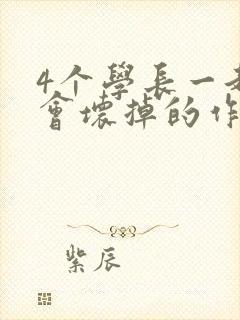 4个學長一
會壞掉的作
紫辰